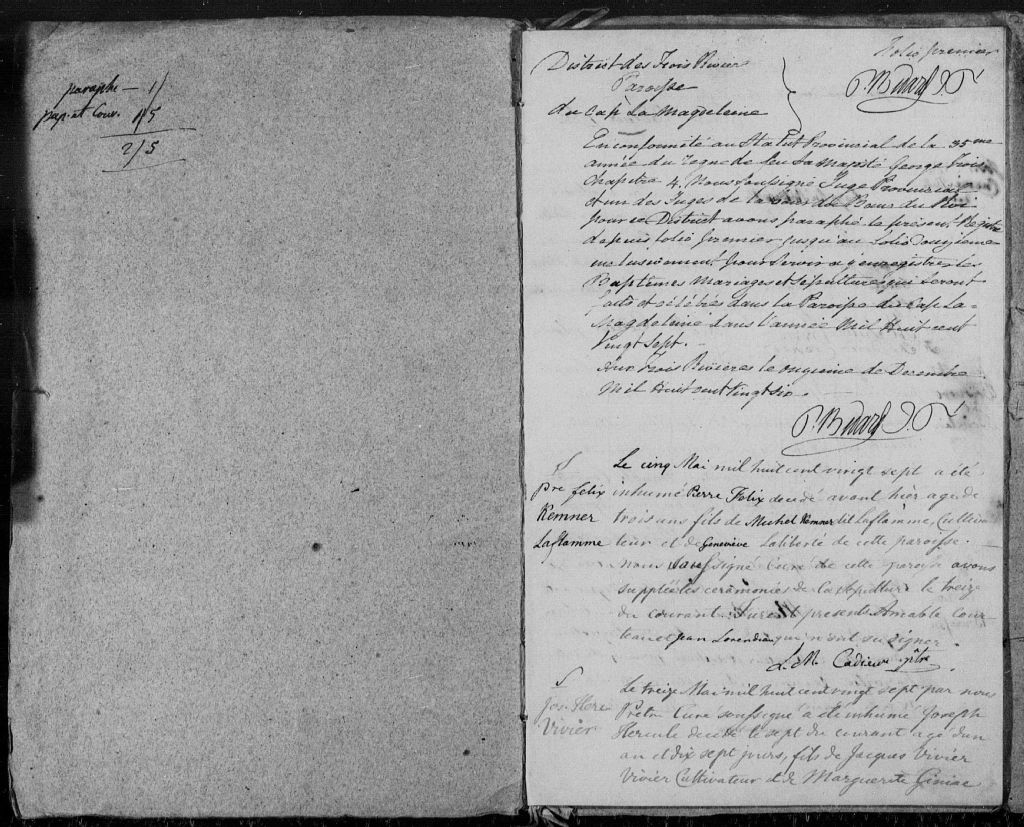 paraphe — 1/
pap. et Couv. 1/5
2/5
Folio premier
District des Trois Rivieres
Paroisse
du Cap La Magdeleine
P. Bédard J. P.
En conformité au Statut Provincial de la 35me
année du regne de feu Sa Majesté George Trois
Chapitre 4. Nous soussigné Juge Provincial
et un des Juges de la Cour du Banc du Roi
pour ce District avons paraphé le présent Régitre
depuis folio premier jusqu'au folio douzieme
inclusivement pour servir a y enregistrer les
Baptêmes Mariages et Sépultures qui seront
faits et célébrés dans la Paroisse du Cap La-
Magdeleine dans l'année Mil Huit cent
Vingt Sept. -
Aux Trois Rivieres le onzieme de Decembre
Mil Huit cent Vingt six.
P. Bédard J. P.
S
Pre felix
Kemner
Laflamme
Le cinq Mai mil huit cent vingt sept a été
inhumé Pierre Felix decedé avant hier agé de
trois ans fils de Michel Kemner dit Laflamme, Cultiva
teur et de Geneviève Laliberté de cette paroisse. -
nous soussigné Curé de cette paroisse avons
suppléé les ceremonies de la sepulture le treize
du courant. Furent presents Amable Cour
teau et Jean Lorendeau qui n'ont su signer.
L. M. Cadieux ptre
S
Jos. Herc
Vivier
Le treize Mai mil huit cent vingt sept par nous
Prêtre Curé soussigné a été inhumé Joseph
Hercule decedé le sept du courant agé d'un
an et dix sept jours, fils de Jacques Vivier
Vivier Cultivateur et de Marguerite Giniac